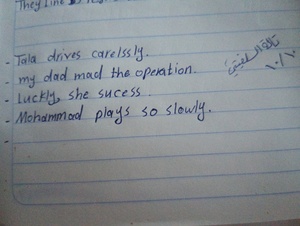 They Line
- Tala drives carelssly.
- my dad mad the operation.
- Luckly, she sucess.
- Mohammad plays so slowly.
-
١٠/١٠